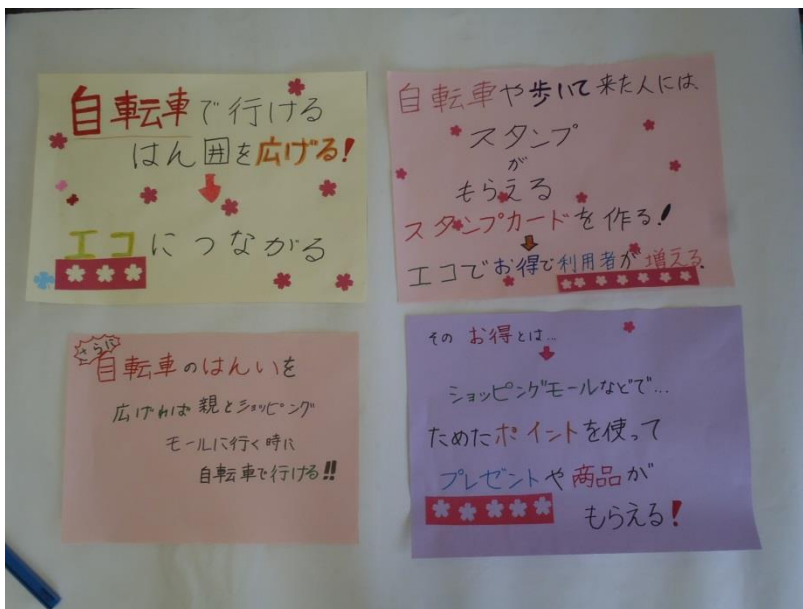 自転車で行ける
はん囲を広げる!
エコにつながる
自転車や歩いて来た人には、
スタンプ
が
もらえる
スタンプカードを作る!
エコでお得で利用者が増える。
さらに
自転車のはんいを
広げれば親とショッピング
モールに行く時に
自転車で行ける!!
その お得とは…
ショッピングモールなどで…
ためたポイントを使って
プレゼントや商品が
もらえる!